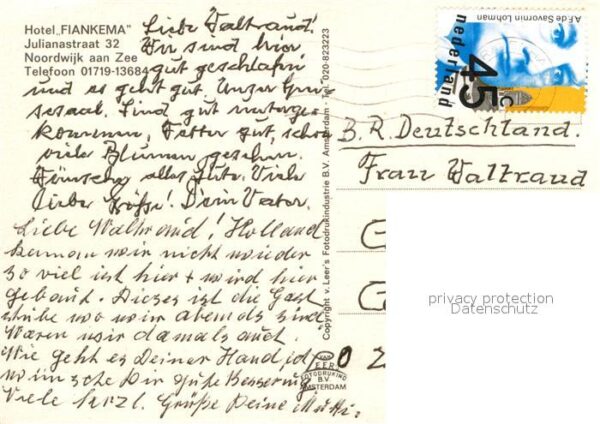 Hotel „FIANKEMA"
Julianastraat 32
Noordwijk aan Zee
Telefoon 01719-13684
Liebe Waltraud!
Wir sind hier
gut geschlafen
und es geht gut. Unser
Sind gut
kommen, Wetter gut, schon
viele Blumen gesehen.
Wünsche alles Gute. Viele
liebe Grüße! Dein Vater.
Liebe Waltraud! Holland
kennen wir nicht wieder
so viel ist hier + wird hier
gebaut. Dieses ist die Gast
stube wo wir abends sind
Waren wir damals auch.
Wie geht es Deiner Hand, ich
wünsche Dir gute Besserung
Viele herzl. Grüße Deine Mutti.
Copyright v. Leer's Fotodrukindustrie B.V. Amsterdam - Tel. 020-823223
VAN LEER
FOTODRUKIND
B.V.
AMSTERDAM
A.F. de Savornin Lohman
nederland
45 c
B.R. Deutschland.
Frau Waltraud
privacy protection
Datenschutz